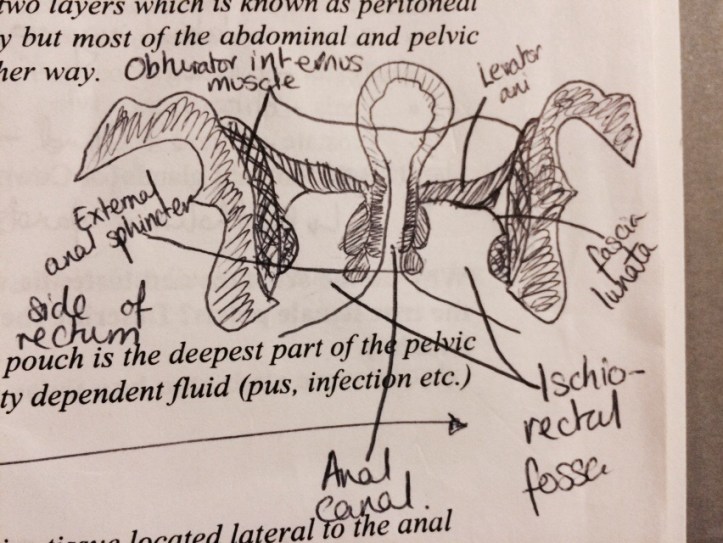 two layers which is known as peritoneal
y but most of the abdominal and pelvic
her way.
Obturator internus
muscle
Levator
ani
External
anal sphincter
fascia
lunata
side of
rectum
pouch is the deepest part of the pelvic
ty dependent fluid (pus, infection etc.)
Ischio-
rectal
fossa
Anal
canal.
tissue located lateral to the anal